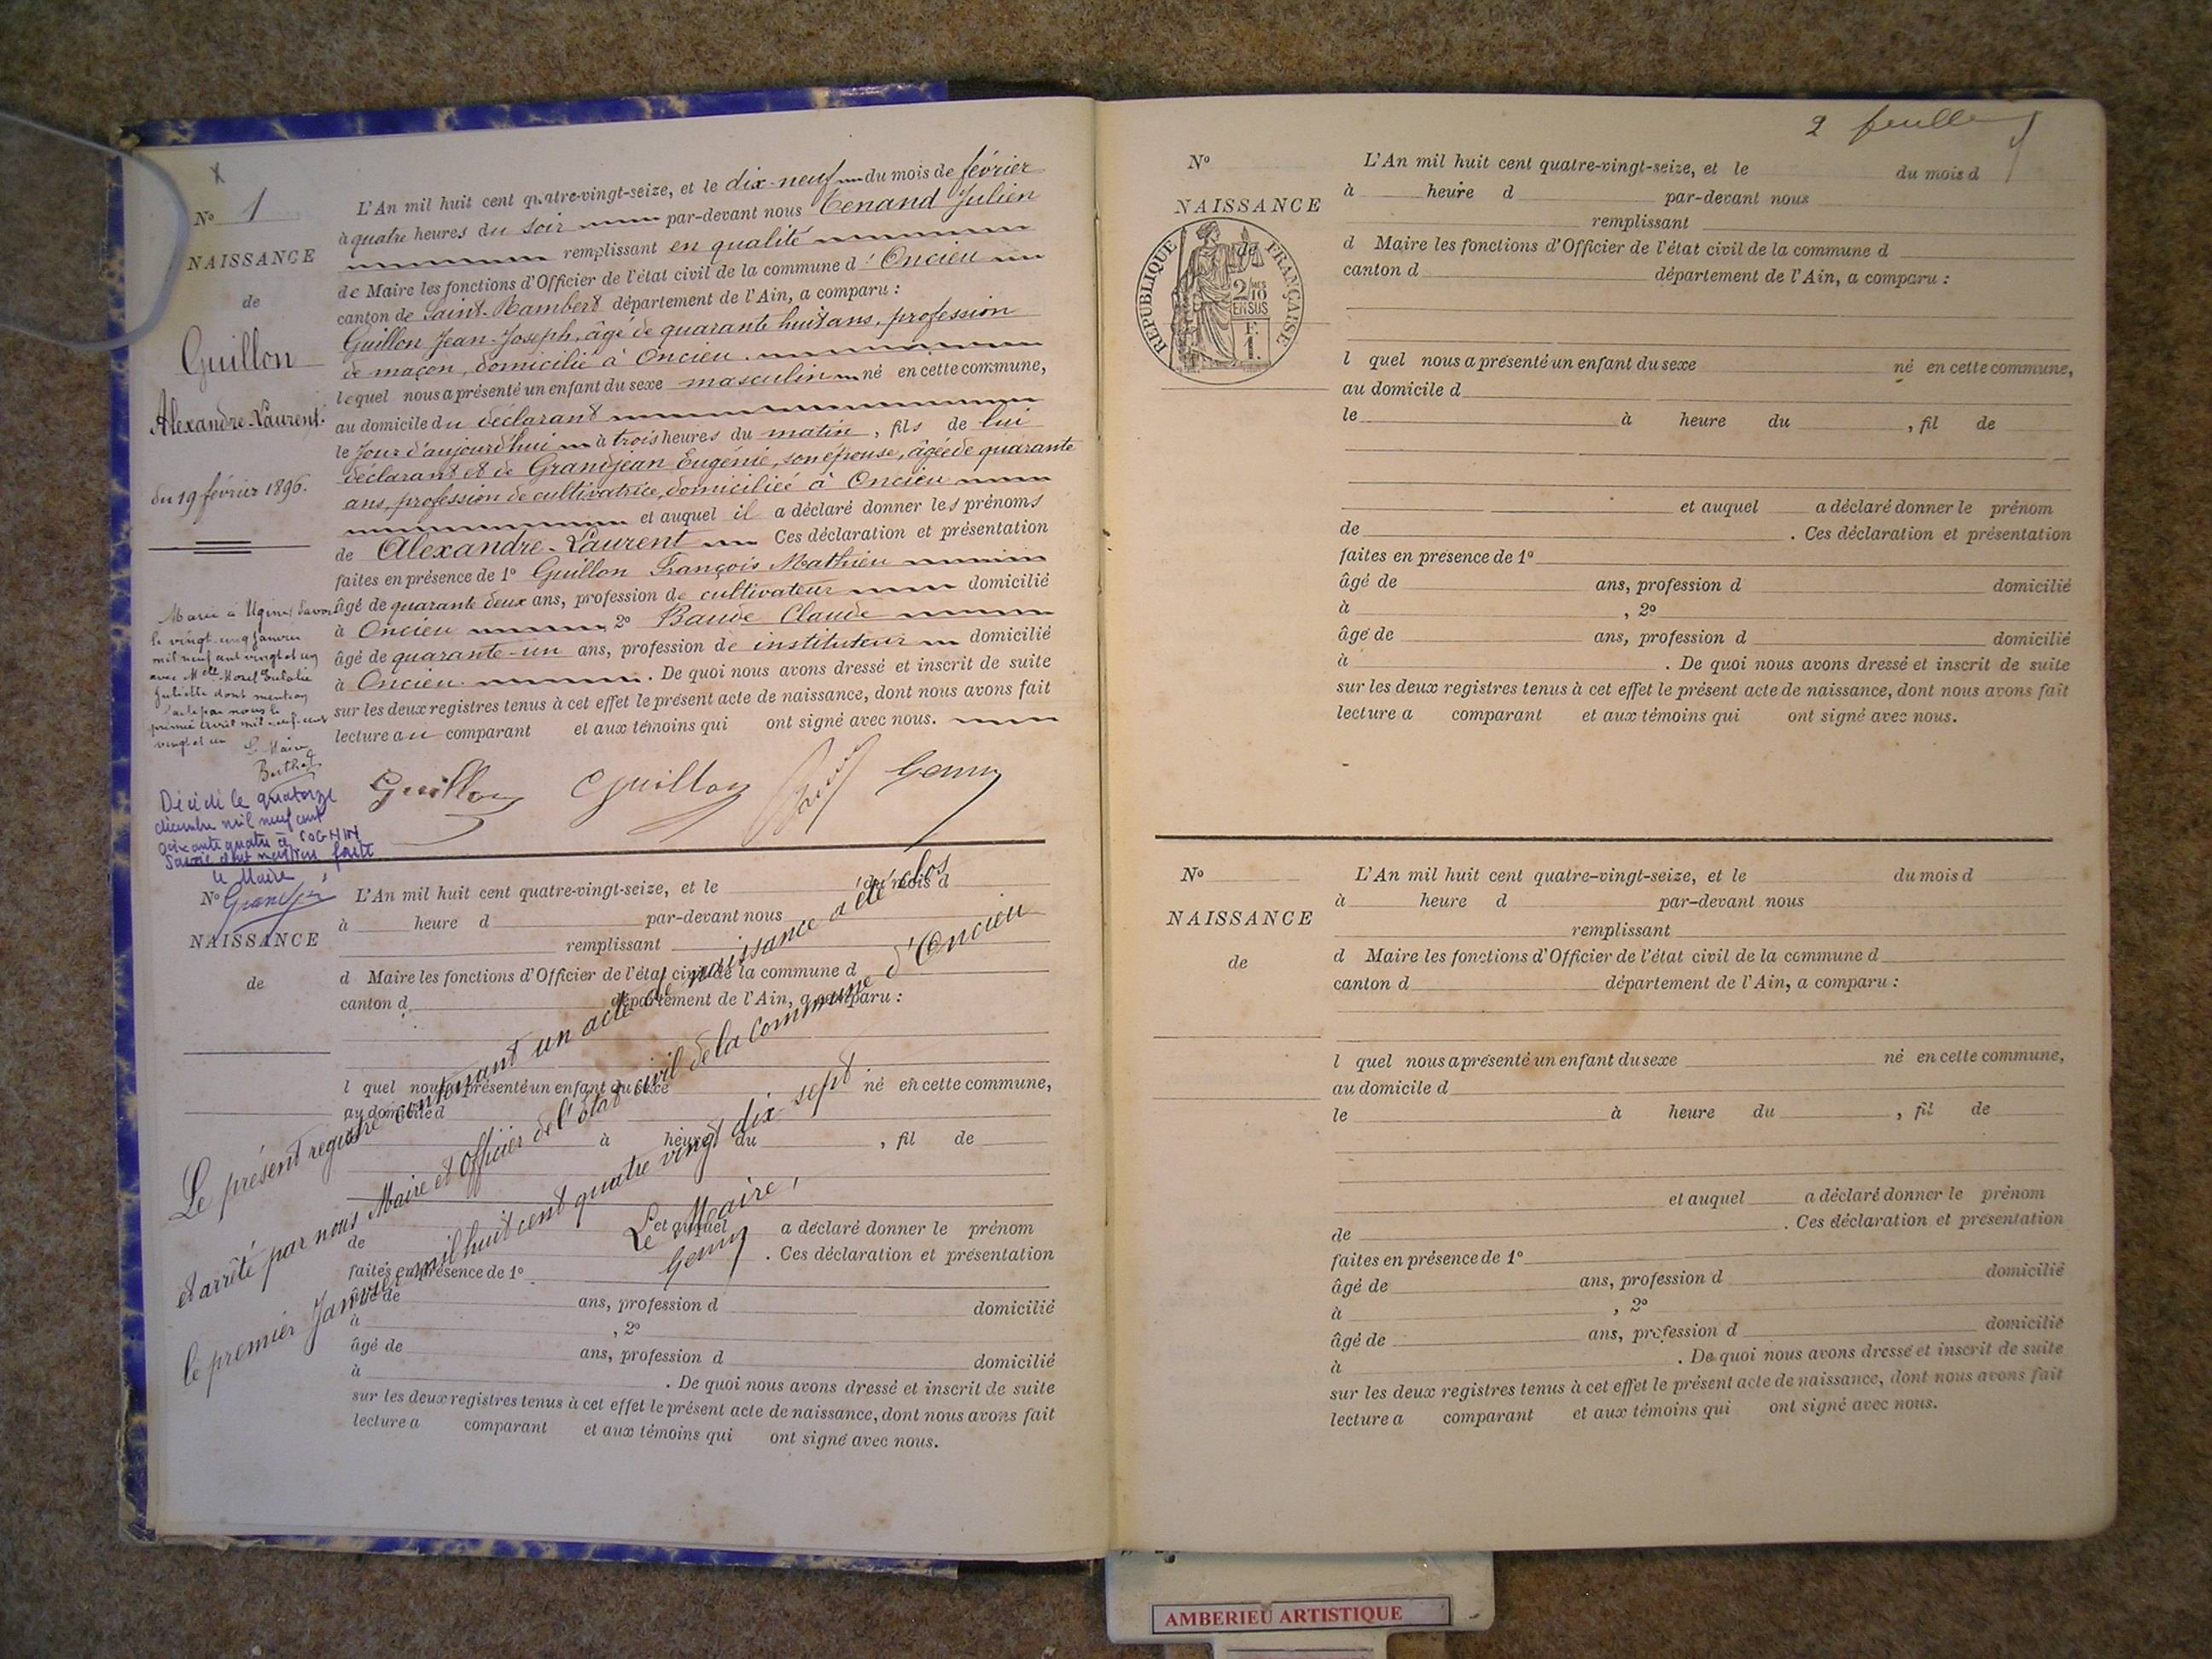 Nº 1
NAISSANCE
de
Guillon
Alexandre-Laurent.
du 19 février 1896.
L'An mil huit cent quatre-vingt-seize, et le dix-neuf du mois de février
à quatre heures du soir par-devant nous Tenand Julien
remplissant en qualité
de Maire les fonctions d'Officier de l'état civil de la commune d'Oncieu
canton de Saint-Rambert département de l'Ain, a comparu :
Guillon Jean-Joseph, âgé de quarante huit ans, profession
de maçon, domicilié à Oncieu.
lequel nous a présenté un enfant du sexe masculin né en cette commune,
au domicile du déclarant
le jour d'aujourd'hui à trois heures du matin, fils de lui
déclarant et de Grandjean Eugénie, son épouse, âgée de quarante
ans, profession de cultivatrice, domiciliée à Oncieu
et auquel il a déclaré donner les prénoms
de Alexandre-Laurent Ces déclaration et présentation
faites en présence de 1º Guillon François Mathieu
âgé de quarante deux ans, profession de cultivateur domicilié
à Oncieu , 2º Baude Claude
âgé de quarante-un ans, profession de instituteur domicilié
à Oncieu. . De quoi nous avons dressé et inscrit de suite
sur les deux registres tenus à cet effet le présent acte de naissance, dont nous avons fait
lecture au comparant et aux témoins qui ont signé avec nous.
Guillon CGuillon
Marié à Ugine, Savoie
le vingt cinq Janvier
mil neuf cent vingt et un
avec Melle Morel Eulalie
Juliette dont mention
faite par nous le
premier avril mil neuf cent
vingt et un Le Maire
Berthet
Décédé le quatorze
décembre mil neuf cent
soixante quatre à COGNIN
Savoie dont mention faite
le Maire
Grandjean
Nº
NAISSANCE
de
L'An mil huit cent quatre-vingt-seize, et le du mois d
à heure d par-devant nous
remplissant
d Maire les fonctions d'Officier de l'état civil de la commune d
canton d département de l'Ain, a comparu :
l quel nous a présenté un enfant du sexe né en cette commune,
au domicile d
à heure du , fil de
et auquel a déclaré donner le prénom
de . Ces déclaration et présentation
faites en présence de 1º
âgé de ans, profession d domicilié
à , 2º
âgé de ans, profession d domicilié
à . De quoi nous avons dressé et inscrit de suite
sur les deux registres tenus à cet effet le présent acte de naissance, dont nous avons fait
lecture a comparant et aux témoins qui ont signé avec nous.
Le présent registre contenant un acte de naissance a été clos
et arrêté par nous Maire et Officier de l'état civil de la Commune d'Oncieu
le premier Janvier mil huit cent quatre vingt dix sept
Le Maire,
2 feuille
Nº
NAISSANCE
de
REPUBLIQUE FRANÇAISE
2/10
EN SUS
F.
1.
L'An mil huit cent quatre-vingt-seize, et le du mois d
à heure d par-devant nous
remplissant
d Maire les fonctions d'Officier de l'état civil de la commune d
canton d département de l'Ain, a comparu :
l quel nous a présenté un enfant du sexe né en cette commune,
au domicile d
le à heure du , fil de
et auquel a déclaré donner le prénom
de . Ces déclaration et présentation
faites en présence de 1º
âgé de ans, profession d domicilié
à , 2º
âgé de ans, profession d domicilié
à . De quoi nous avons dressé et inscrit de suite
sur les deux registres tenus à cet effet le présent acte de naissance, dont nous avons fait
lecture a comparant et aux témoins qui ont signé avec nous.
Nº
NAISSANCE
de
L'An mil huit cent quatre-vingt-seize, et le du mois d
à heure d par-devant nous
remplissant
d Maire les fonctions d'Officier de l'état civil de la commune d
canton d département de l'Ain, a comparu :
l quel nous a présenté un enfant du sexe né en cette commune,
au domicile d
le à heure du , fil de
et auquel a déclaré donner le prénom
de . Ces déclaration et présentation
faites en présence de 1º
âgé de ans, profession d domicilié
à , 2º
âgé de ans, profession d domicilié
à . De quoi nous avons dressé et inscrit de suite
sur les deux registres tenus à cet effet le présent acte de naissance, dont nous avons fait
lecture a comparant et aux témoins qui ont signé avec nous.
AMBERIEU ARTISTIQUE